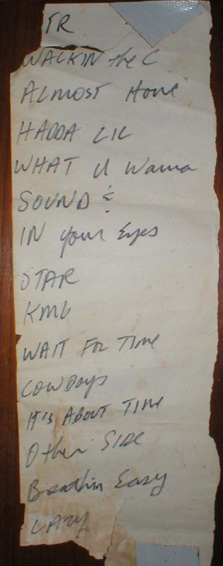 TR
WALKIN the C
ALMOST Home
HADDA LIL
WHAT U Wanna
SOUND &
IN your Eyes
STAR
KML
WAIT FOR TIME
COWBOYS
IT'S ABOUT TIME
Other SIDE
Breathin Easy
LAZY